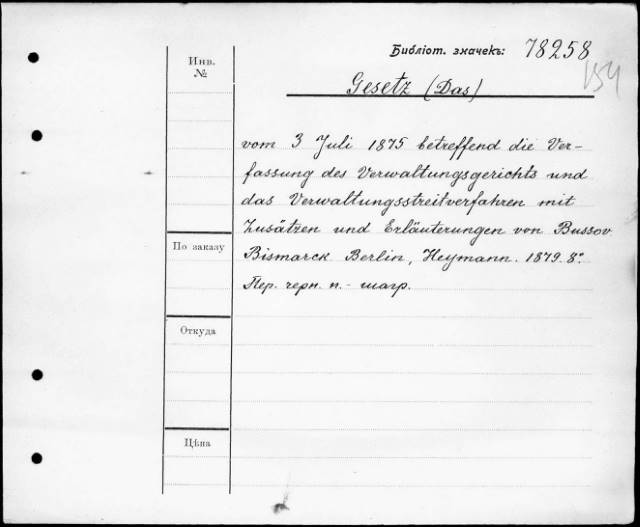 Библіот. значекъ: 78258
154
Инв.
№
Gesetz (Das)
vom 3 Juli 1875 betreffend die Ver-
fassung des Verwaltungsgerichts und
das Verwaltungsstreitverfahren mit
Zusätzen und Erläuterungen von Bussov
По заказу
Bismarck Berlin, Heymann. 1879. 8°.
Пер. черн. п.- шагр.
Откуда
Цѣна